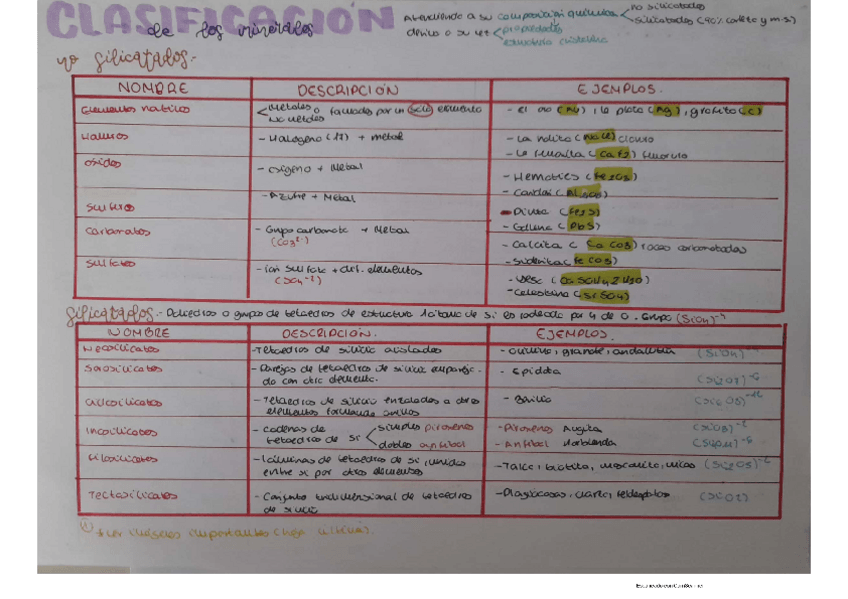 CLASIFICACION de los minerales
Atendiendo a su composición química
no silicatados
silicatados (40% corteza y m.s)
propiedades
estructura cristalina
no silicatados.-
NOMBRE DESCRIPCIÓN EJEMPLOS.
Elementos nativos
Metales
No metales
o formados por un solo elemento
- El oro (Au), la plata (Ag), grafito (C)
Haluros
- Halogeno (17) + metal
- La halita (NaCl) cloruro
- La fluorita (CaF2) fluoruro
óxidos
- oxigeno + Metal
- Hematies (Fe2O3)
- (Al2O3)
Sulfuros
- Azufre + Metal
- Pirita (FeS2)
- Galena (PbS)
Carbonatos
- Grupo carbonato + Metal
(CO3²⁻)
- Calcita (CaCO3) rocas carbonatadas
- Siderita (FeCO3)
Sulfatos
- ion sulfato + dif. elementos
(SO4⁻²)
- Yeso (CaSO4 2H2O)
- Celestina (SrSO4)
Silicatados.- Poliedros o grupo de tetaedros de estructura de Si es rodeado por 4 de O. Grupo (SiO4)⁻⁴
NOMBRE DESCRIPCIÓN. EJEMPLOS.
Nesosilicatos
- Tetaedros de silicio aislados
- Olivino, granate, andalucita (SiO4)
Sorosilicatos
- Parejas de tetaedros de silicio empareja-
do con otro elemento.
- Epidota
(Si2O7)⁻⁶
Ciclosilicatos
- Tetaedros de silicio enlazados a otros
elementos formando anillos
- Berilo
Inosilicatos
- Cadenas de
tetaedros de Si
simples piroxenos
dobles anfibol
- Piroxenos Augita
(SiO3)⁻²
- Anfibol Horblenda
(Si4O11)⁻⁶
Filosilicatos
- Láminas de tetaedros de Si, unidos
entre si por otros elementos
- Talco, biotita, moscovita, micas (Si2O5)⁻²
Tectosilicatos
- Conjunto tridimensional de tetaedros
de silicio
- Plagioclasas, cuarzo, feldespatos (SiO2)
importantes
Escaneado con CamScanner